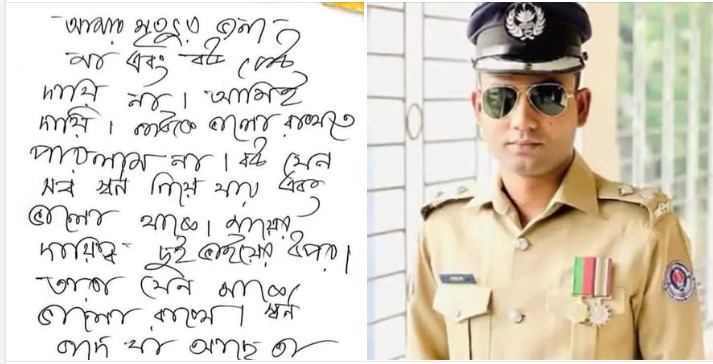 আমার মৃত্যুর জন্য
মা এবং বউ কেউ
দায়ি না। আমিই
দায়ি। কাউকে ভালো রাখতে
পারলাম না। বউ যেন
সব স্বর্ন নিয়ে যায় এবং
ভালো থাকে। মায়ের
দায়িত্ব দুই ভাইয়ের উপর।
তারা যেন মাকে
ভালো রাখে। স্বর্ন
বাদে যা আছে তা